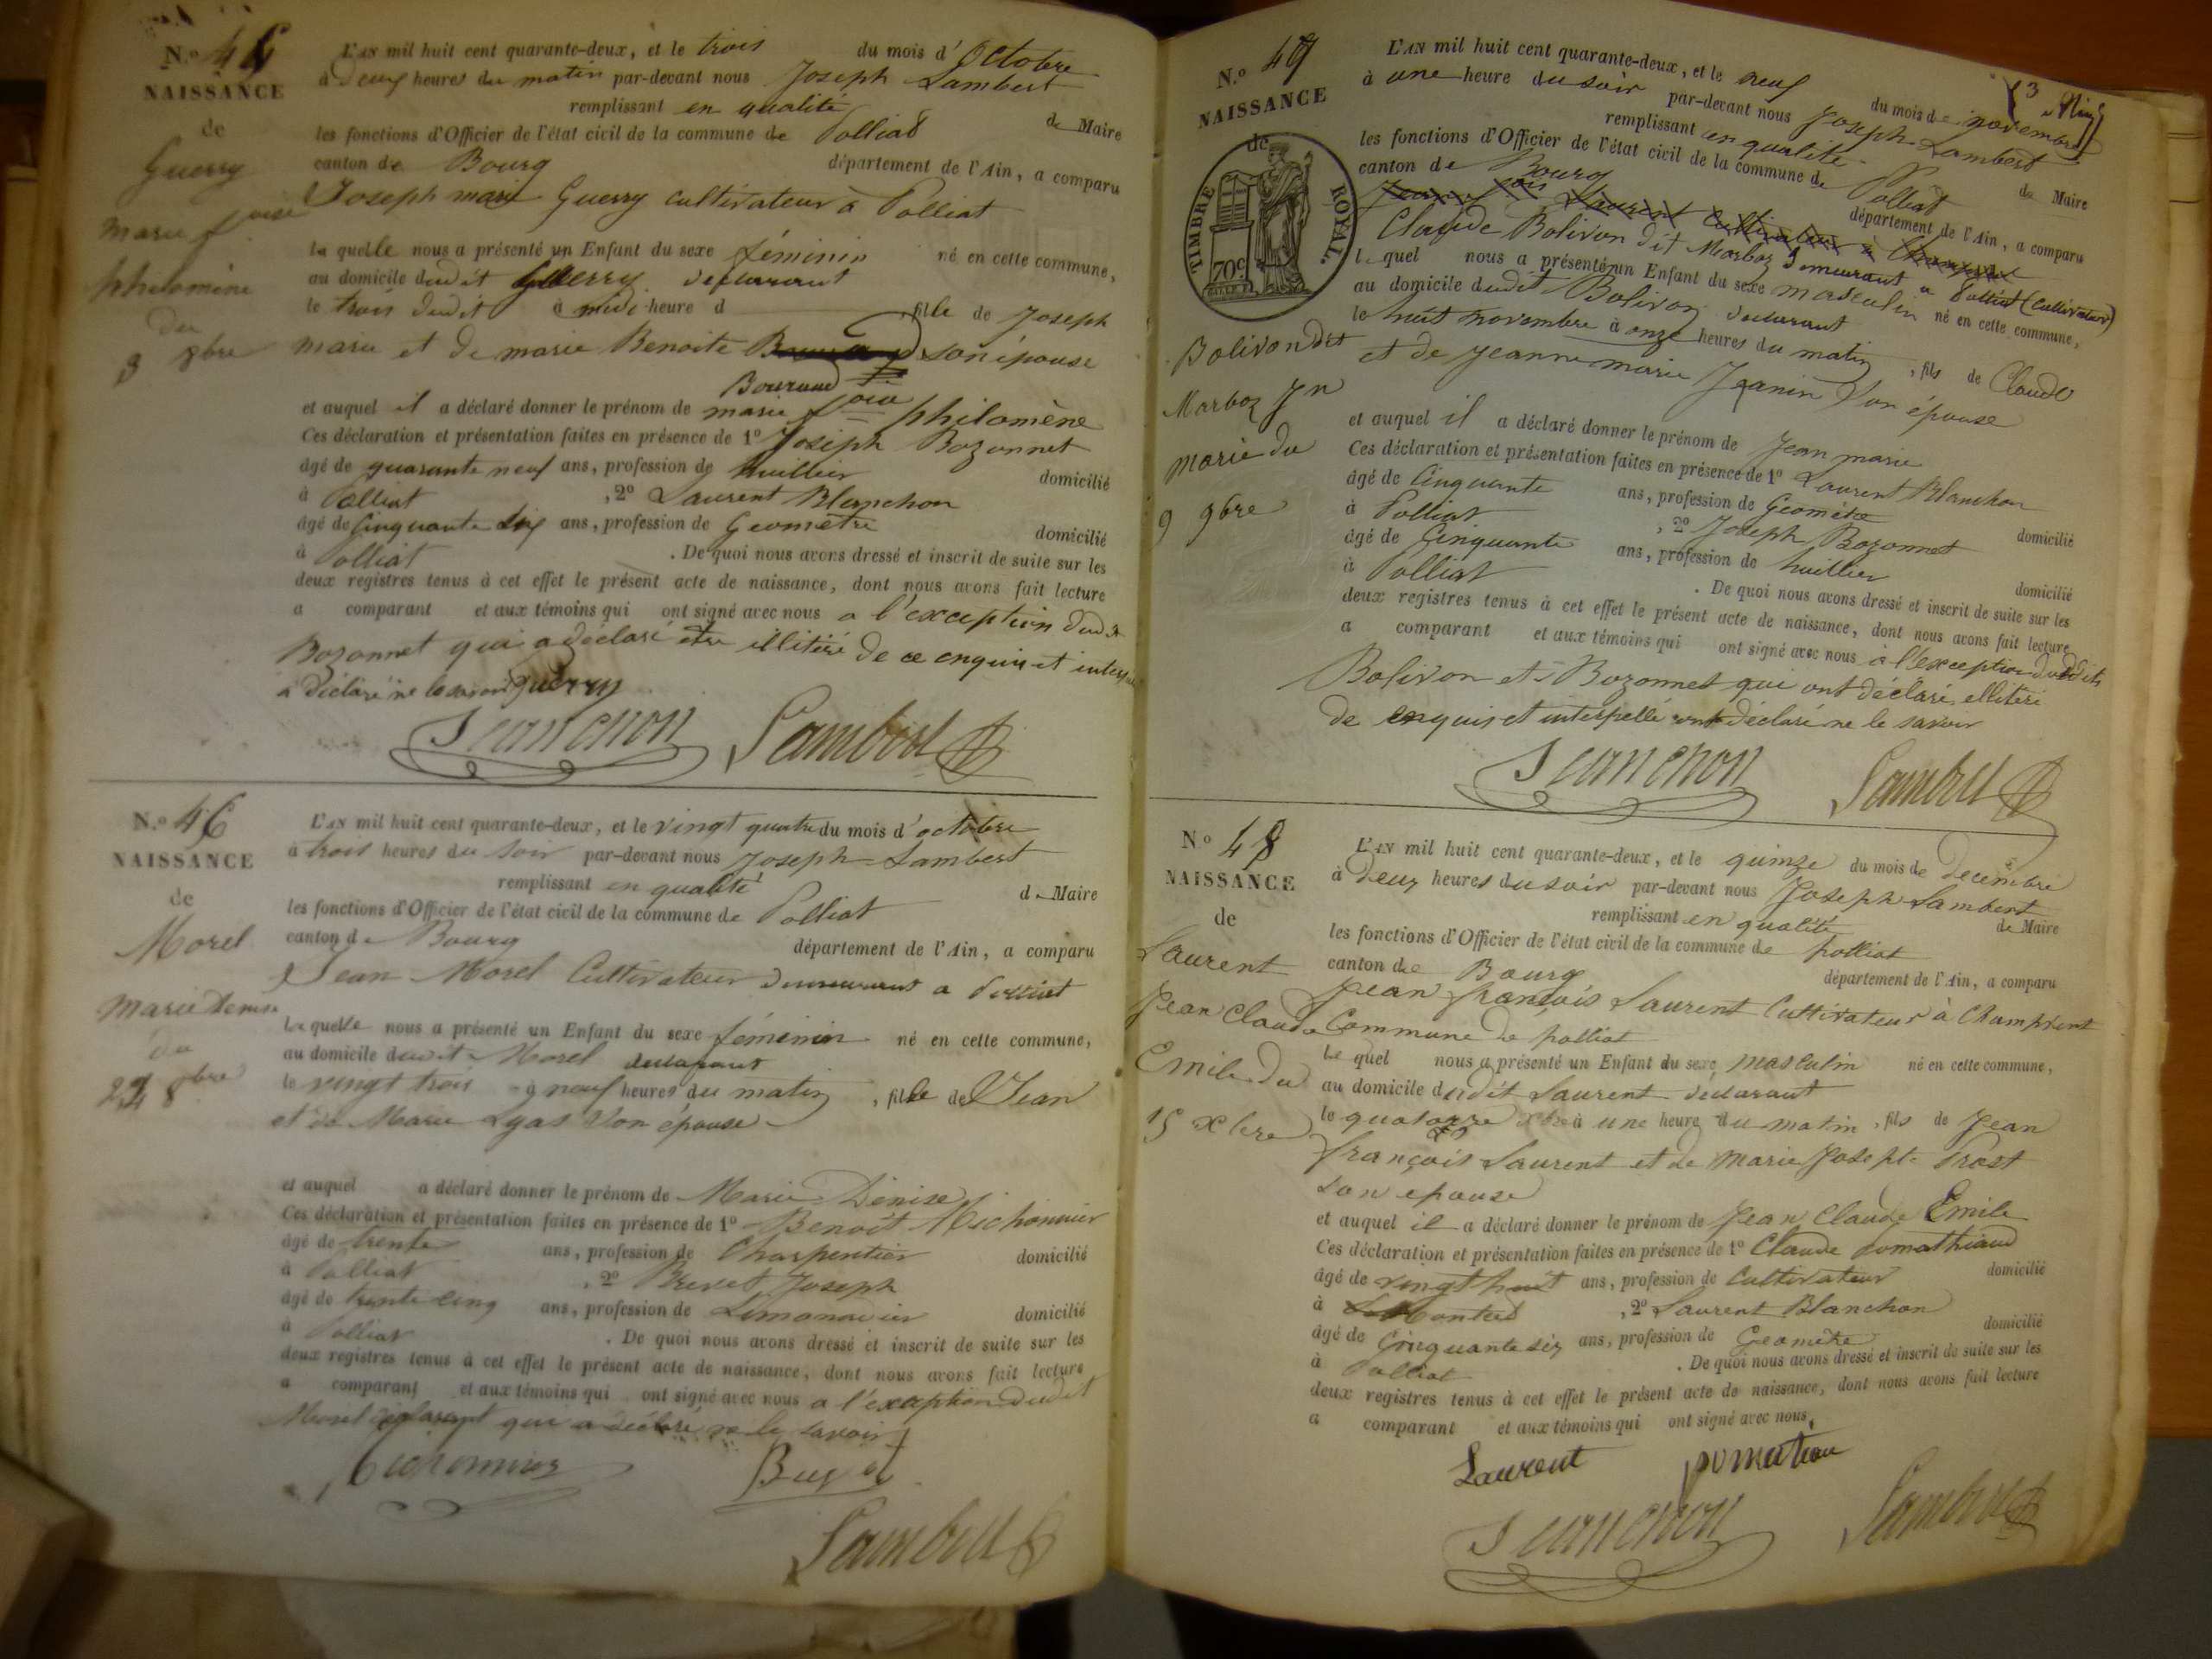 N.o
NAISSANCE
de
Guerry
marie f oise
philomène
du
3 8bre
L'AN mil huit cent quarante-deux, et le trois du mois d'Octobre
à heures du matin par-devant nous Joseph Lambert
remplissant en qualité de Maire
les fonctions d'Officier de l'état civil de la commune de Polliat
canton de Bourg département de l'Ain, a comparu
Joseph marie Guerry cultivateur à Polliat
le quelle nous a présenté un Enfant du sexe féminin né en cette commune,
au domicile dudit Guerry déclarant
le trois dudit à midi heure d , fille de Joseph
marie et de marie Benoite son épouse
et auquel il a déclaré donner le prénom de marie f oise philomène
Ces déclaration et présentation faites en présence de 1o Joseph Bozonnet
âgé de quarante neuf ans, profession de huillier domicilié
à Polliat , 2o Laurent Blanchon
âgé de Cinquante six ans, profession de Géomètre domicilié
à Polliat . De quoi nous avons dressé et inscrit de suite sur les
deux registres tenus à cet effet le présent acte de naissance, dont nous avons fait lecture
a comparant et aux témoins qui ont signé avec nous a l'exception dudit
Bozonnet qui a déclaré etre illitéré de ce enquis et
a déclaré ne le savoir Guerry
Blanchon Lambert
N.o 46
NAISSANCE
de
Morel
Marie Denise
du
24 8bre
L'AN mil huit cent quarante-deux, et le vingt quatre du mois d'octobre
à trois heures du soir par-devant nous Joseph Lambert
remplissant en qualité de Maire
les fonctions d'Officier de l'état civil de la commune de Polliat
canton de Bourg département de l'Ain, a comparu
Jean Morel Cultivateur demeurant a Polliat
le quelle nous a présenté un Enfant du sexe féminin né en cette commune,
au domicile dudit Morel déclarant
le vingt trois à neuf heures du matin , fille de Jean
et de Marie Lyas son épouse
et auquel a déclaré donner le prénom de Marie Denise
Ces déclaration et présentation faites en présence de 1o Benoit Michonnier
âgé de trente ans, profession de Charpentier domicilié
à Polliat , 2o Brevet Joseph
âgé de trente cinq ans, profession de Limonadier domicilié
à Polliat . De quoi nous avons dressé et inscrit de suite sur les
deux registres tenus à cet effet le présent acte de naissance, dont nous avons fait lecture
a comparant et aux témoins qui ont signé avec nous a l'exception dudit
Morel déclarant qui a déclaré ne le savoir
Lambert
N.o 47
NAISSANCE
de
TIMBRE ROYAL.
70c
Bolivon dit
Marboz Jn
marie du
9 9bre
L'AN mil huit cent quarante-deux, et le neuf du mois de novembre
à une heure du soir par-devant nous Joseph Lambert
remplissant en qualité de Maire
les fonctions d'Officier de l'état civil de la commune de Polliat
canton de Bourg département de l'Ain, a comparu
Claude Bolivon dit Marboz demeurant a Polliat (Cultivateur)
le quel nous a présenté un Enfant du sexe masculin né en cette commune,
au domicile dudit Bolivon déclarant
le huit novembre à onze heures du matin , fils de Claude
et de Jeanne marie Jeanin son épouse
et auquel il a déclaré donner le prénom de Jean marie
Ces déclaration et présentation faites en présence de 1o Laurent Blanchon
âgé de Cinquante ans, profession de Géomètre domicilié
à Polliat , 2o Joseph Bozonnet
âgé de Cinquante ans, profession de huillier domicilié
à Polliat . De quoi nous avons dressé et inscrit de suite sur les
deux registres tenus à cet effet le présent acte de naissance, dont nous avons fait lecture
a comparant et aux témoins qui ont signé avec nous à l'exception dudits
Bolivon et Bozonnet qui ont déclaré illitéré
de enquis et interpellé ont déclaré ne le savoir
Blanchon Lambert
N.o 48
NAISSANCE
de
Laurent
Jean Claude
Emile du
15 xbre
L'AN mil huit cent quarante-deux, et le quinze du mois de décembre
à deux heures du soir par-devant nous Joseph Lambert
remplissant en qualité de Maire
les fonctions d'Officier de l'état civil de la commune de polliat
canton de Bourg département de l'Ain, a comparu
Jean françois Laurent Cultivateur à Champvent
Commune de polliat
le quel nous a présenté un Enfant du sexe masculin né en cette commune,
au domicile dudit Laurent déclarant
le quatorze xbre à une heure du matin , fils de Jean
françois Laurent et de marie Josepte Prost
son epouse
et auquel il a déclaré donner le prénom de Jean Claude Emile
Ces déclaration et présentation faites en présence de 1o Claude pomathiaud
âgé de vingt huit ans, profession de Cultivateur domicilié
à , 2o Laurent Blanchon
âgé de Cinquante six ans, profession de Géomètre domicilié
à Polliat . De quoi nous avons dressé et inscrit de suite sur les
deux registres tenus à cet effet le présent acte de naissance, dont nous avons fait lecture
a comparant et aux témoins qui ont signé avec nous.
Laurent pomateau
Blanchon Lambert